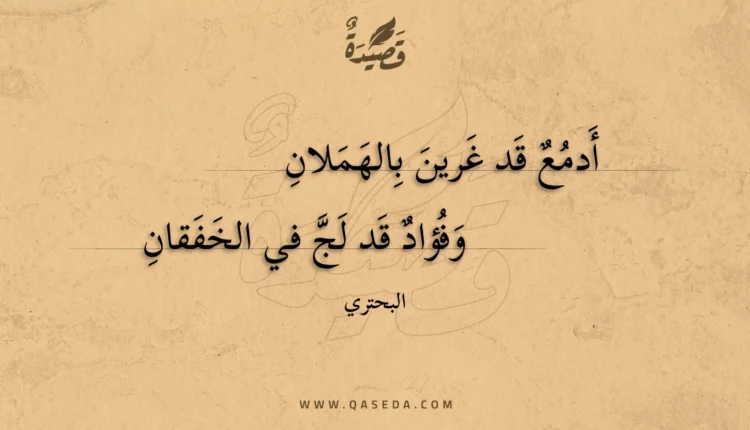 قَصِيدَةٌ
أَدمُعٌ قَد غَرينَ بِالهَمَلانِ
وَفُؤادٌ قَد لَجَّ في الخَفَقانِ
البحتري
WWW.QASEDA.COM